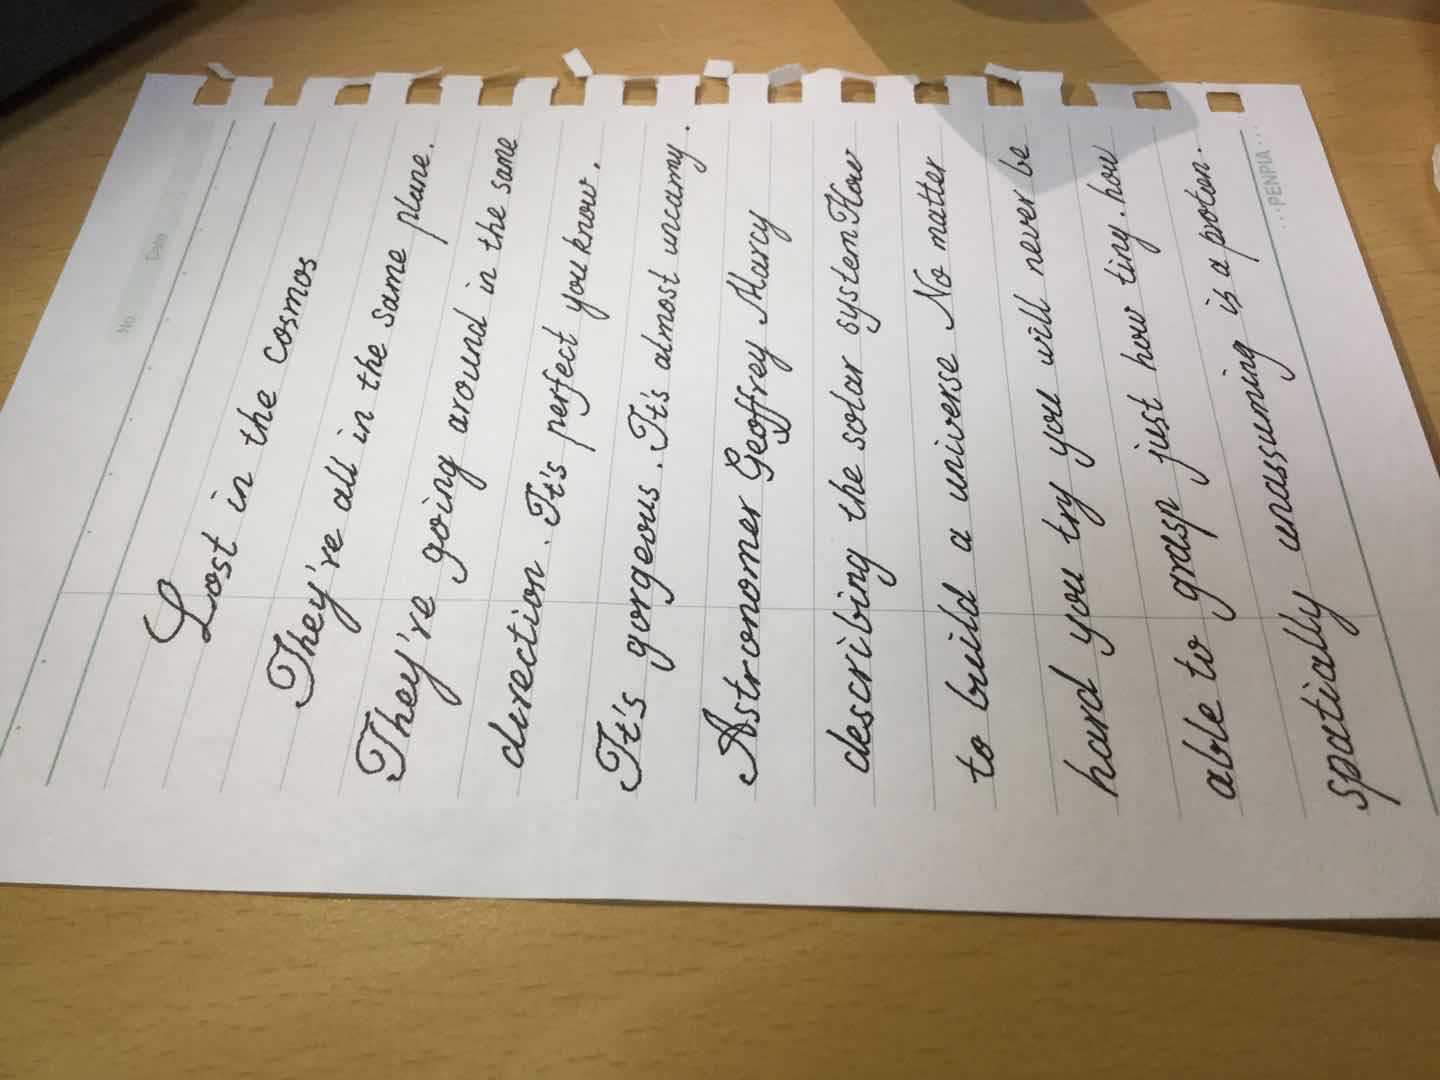 No.
Date
Lost in the cosmos
They're all in the same plane.
They're going around in the same
direction. It's perfect you know.
It's gorgeous. It's almost uncanny.
Astronomer Geoffrey Marcy
describing the solar system How
to build a universe No matter
hard you try you will never be
able to grasp just how tiny. how
spatially unassuming is a proton.
···PENPIA···